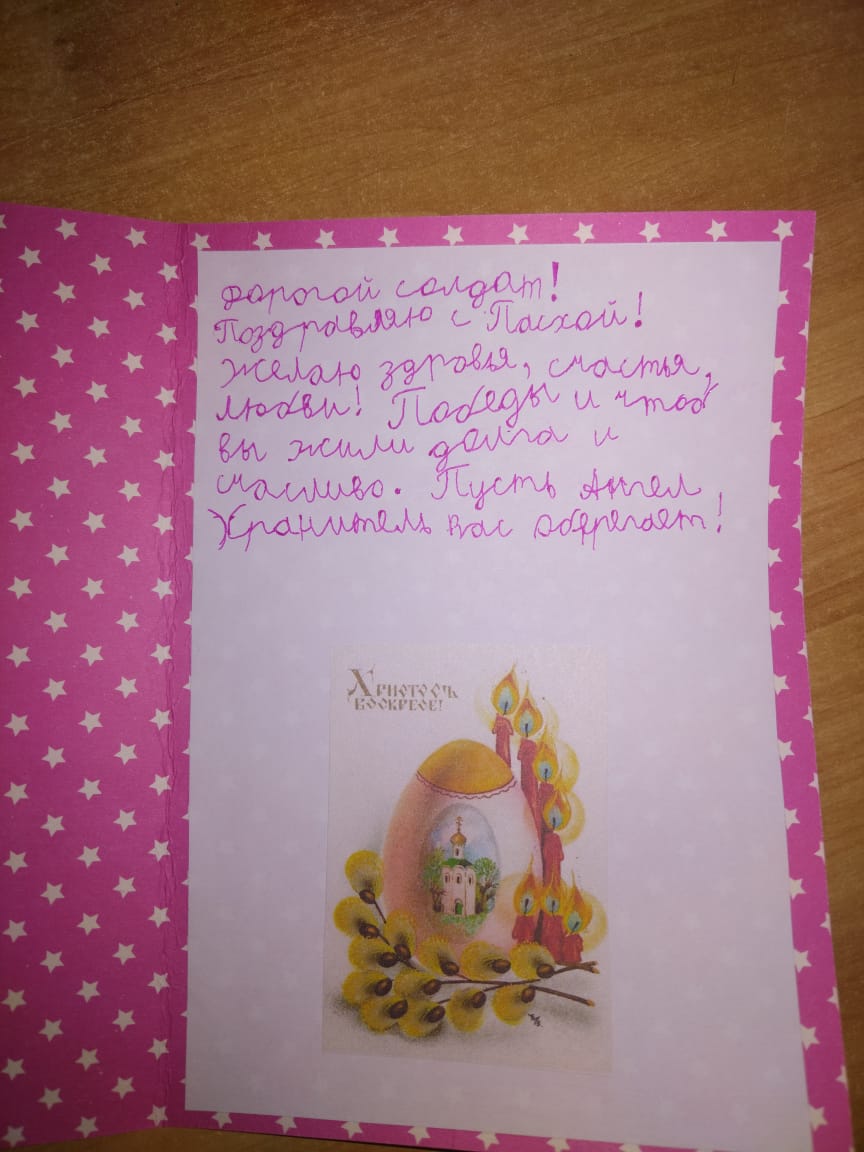 дорогой солдат!
Поздравляю с Пасхой!
Желаю здровья, счастья,
любви! Победы и чтоб
вы жили долга и
счасливо. Пусть Ангел
Хранитель вас оберегает!
Христосъ
Воскресе!